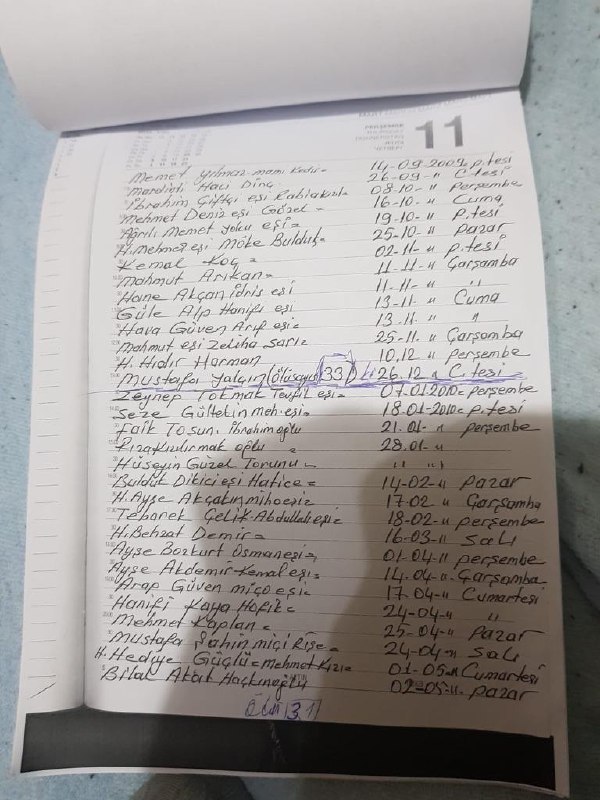 PERŞEMBE 11
Memet Yılmaz-mami Kedi= 14-09-2009= p.tesi
Mardinli Haci Dinç 26-09-" C.tesi
İbrahim Çiftçi eşi Rabiakızı= 08-10-" perşembe
Mehmet Deniz eşi Güzel = 16-10-" Cuma
Ağrılı Memet yolcu eşi= 19-10-" P.tesi
H.Mehmet eşi Möke Bulduk= 25-10-" pazar
Kemal Koç = 02-11-" p.tesi
Mahmut Arikan= 11-11-" Çarşamba
Hane Akçan idris eşi 11-11-" "
Güle Alp Hanifi eşi 13-11-" Cuma
Hava Güven Arif eşi= 13.11-" "
Mahmut eşi Zeliha Sarı= 25-11-" Çarşamba
H. Hıdır Harman 10.12 " perşembe
Mustafa Yalçın (ölüsayısı 33) 26.12 " C.tesi
Zeynep Tokmak Tevfik eşi= 07-01-2010= perşembe
Seze Gültekin meh.eşi= 18-01-2010= p.tesi
Faik Tosun, İbrahimoğlu 21-01-" perşembe
Kızılırmak oğlu = 28.01-"
Hüseyin Güzel Torunu = " " "
Bulduk Dikici eşi Hatice = 14-02-" pazar
H.Ayşe Akçakın 17-02-" Çarşamba
Teborek Çelik Abdullah eşi= 18-02-" perşembe
H.Behzat Demir= 16-03-" Salı
Ayşe Bozkurt Osmaneşi= 01-04-" perşembe
Ayşe Akdemir-Kemal eşi= 14-04-" Çarşamba
Arap Güven miço eşi= 17-04-" Cumartesi
Hanifi Kaya Hafik= 24-04-" "
Mehmet Kaplan= 25-04-" Pazar
Mustafa Şahin miçi Rişe= 24-04-" Salı
H. Hediye Güçlü=Mehmet Kızı= 01-05-" Cumartesi
Bilal Akat Haçkınoğlu 02-05-" pazar
ölü (31)